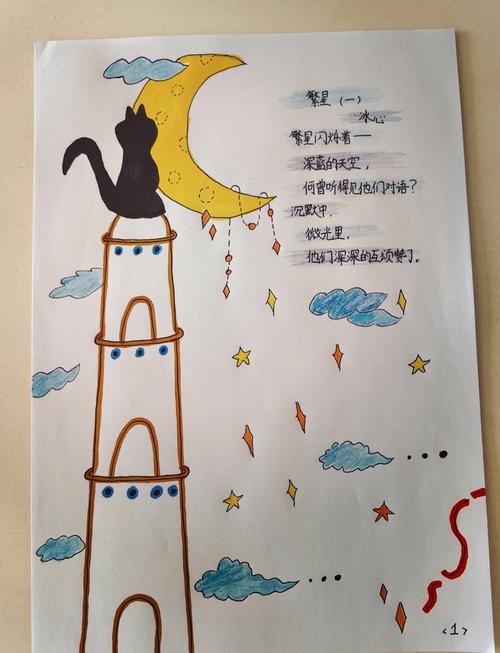 繁星（一）
冰心
繁星闪烁着——
深蓝的天空，
何曾听得见他们对语？
沉默中，
微光里，
他们深深的互颂赞了。
<1>